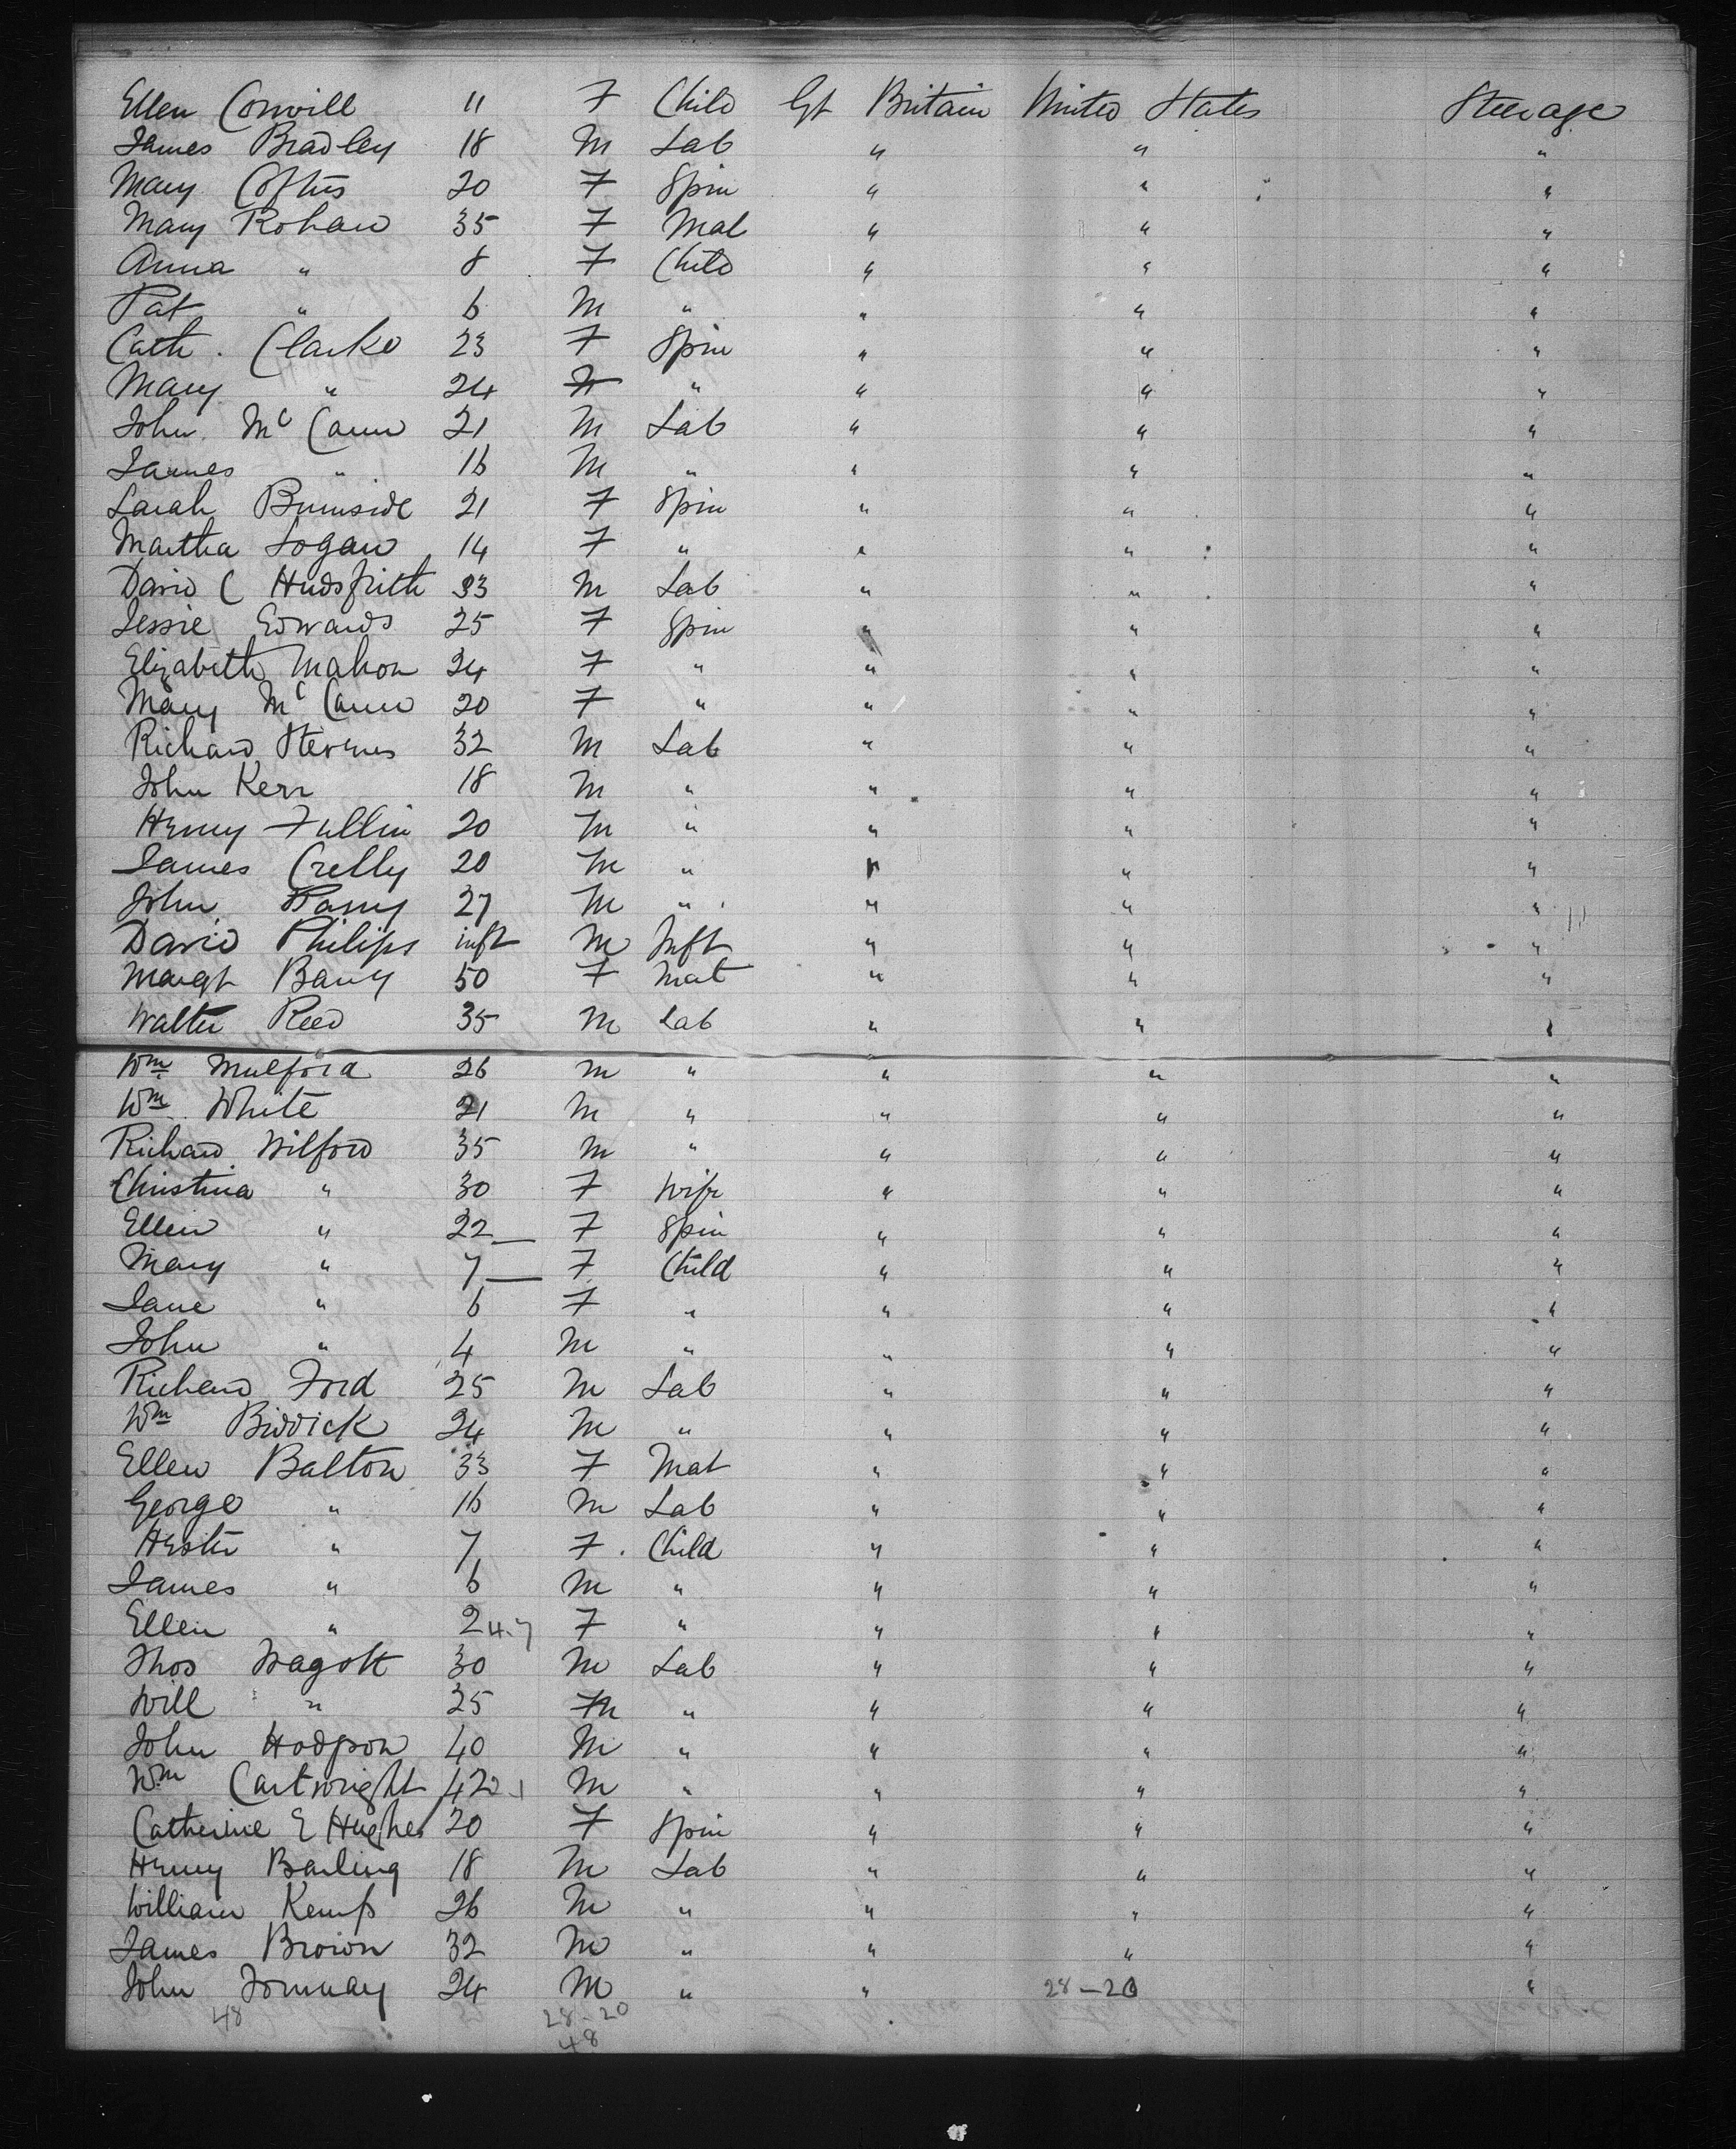 Ellen Convill 11 F Child Gt Britain United States Steerage
James Bradley 18 M Lab " " "
Mary Loftus 20 F Spin " " "
Mary Rohan 35 F Mat " " "
Anna " 8 F Child " " "
Pat " 6 M " " " "
Cath. Clarke 23 F Spin " " "
Mary " 24 F " " " "
John McCann 21 M Lab " " "
James " 16 M " " " "
Sarah Burnside 21 F Spin " " "
Martha Logan 14 F " " " "
David C 33 M Lab " " "
Jessie Edwards 25 F Spin " " "
Elizabeth Mahon 24 F " " " "
Mary McCann 20 F " " " "
Richard Stevens 32 M Lab " " "
John Kerr 18 M " " " "
Henry Fullin 20 M " " " "
James Crelly 20 M " " " "
John Parry 27 M " " " "
David Philips inft M Inft " " "
Margt Barry 50 F Mat " " "
Walter Reed 35 M Lab " " "
Wm Mulford 26 M " " " "
Wm White 21 M " " " "
Richard Wilford 35 M " " " "
Christina " 30 F Wife " " "
Ellen " 22 F Spin " " "
Mary " 7 F Child " " "
Jane " 6 F " " " "
John " 4 M " " " "
Richard Ford 25 M Lab " " "
Wm Biddick 24 M " " " "
Ellen Balton 33 F Mat " " "
George " 16 M Lab " " "
Hester " 7 F Child " " "
James " 6 M " " " "
Ellen " 2 4.7 F " " " "
Thos Wagott 30 M Lab " " "
Will " 25 M " " " "
John Hodgson 40 M " " " "
Wm Cartwright 42 M " " " "
Catherine E Hughes 20 F Spin " " "
Henry Barling 18 M Lab " " "
William Kemp 26 M " " " "
James Brown 32 M " " " "
John 24 M " " 28-20 "
48 28-20
48